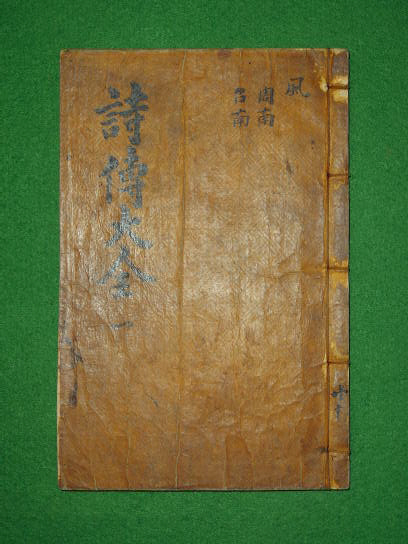 風
周南
召南
詩傳大全 一